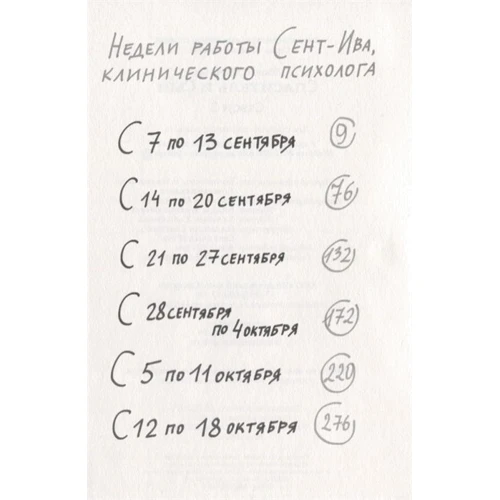 Недели работы Сент-Ива,
клинического психолога
С 7 по 13 сентября 9
С 14 по 20 сентября 76
С 21 по 27 сентября 132
С 28 сентября
по 4 октября 172
С 5 по 11 октября 220
С 12 по 18 октября 276